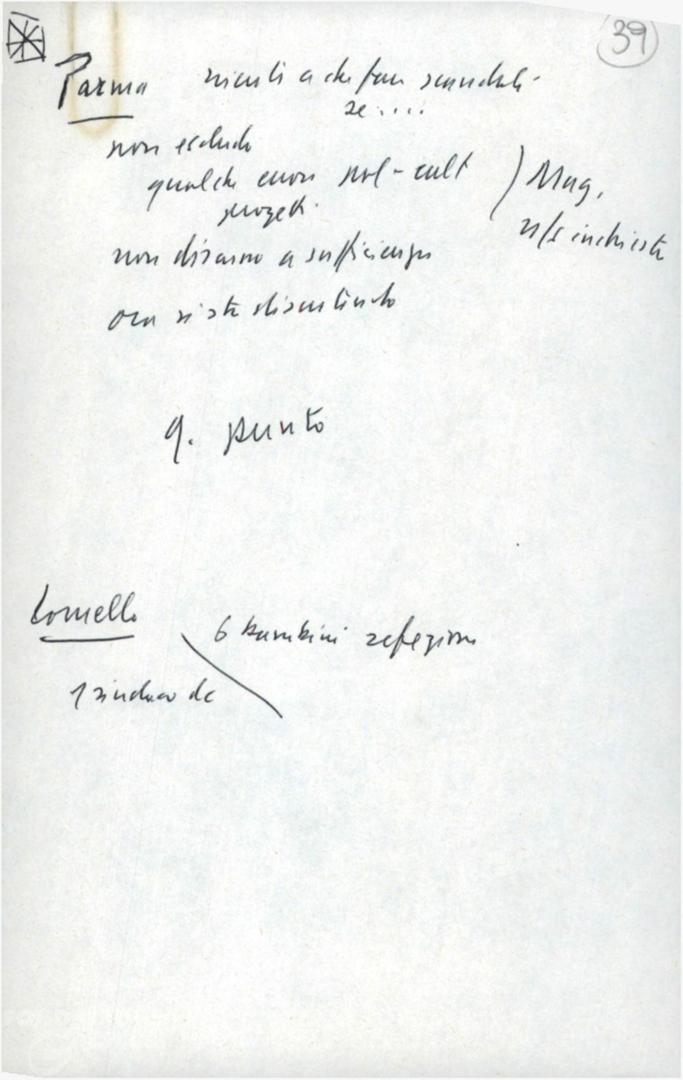 39
Parma niente a che fare scandali
se....
non escludo
qualche errore pol-cult ) Mag.
progett.
n/s inchiesta
non diciamo a sufficienza
ora si sta discutendo
q. punto
Lomello
6 bambini refezione
1 sindaco dc